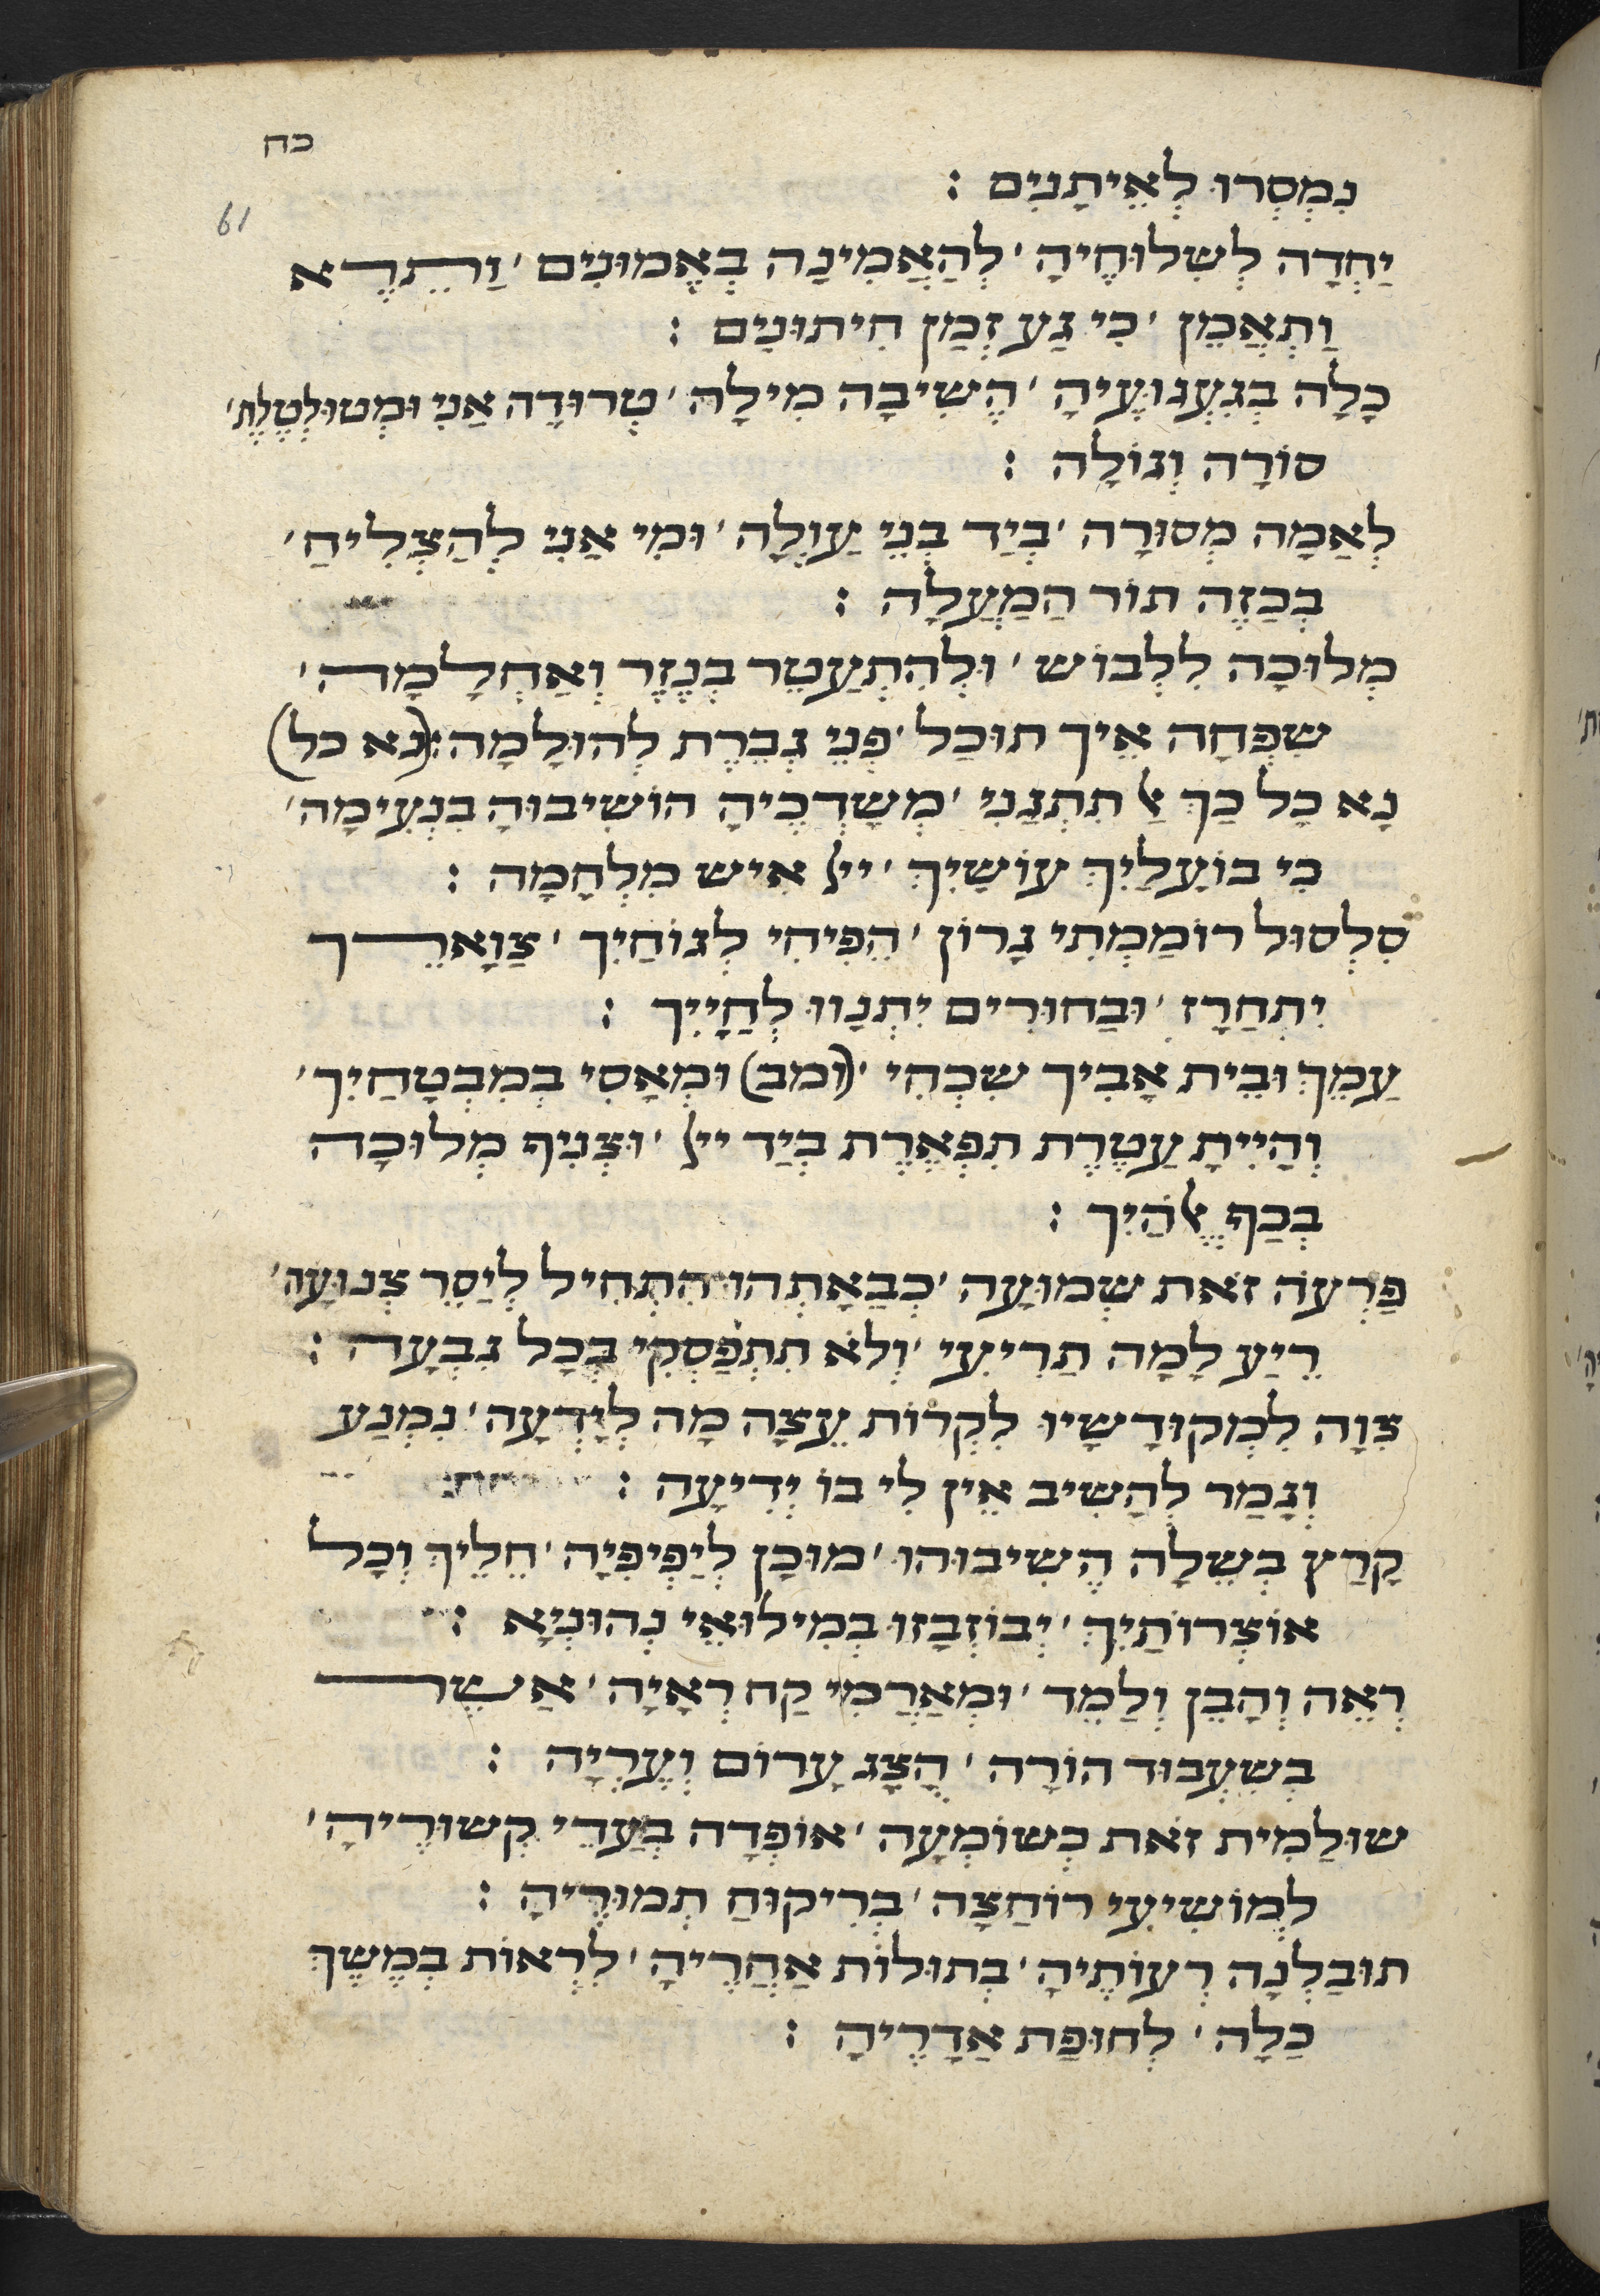 כח
61
נִמְסְרוּ לְאֵיתָנִים :
יַחְדָה לְשִׁלּוּחֶיהָ ׳ לְהַאֲמִינָה בְּאֱמוּנִים ׳ וַתֵּרֶא
וַתְאֲמֵן ׳ כִּי נָע זְמַן חִיתּוּנִים :
כָּלָה בְּגַעְגּוּעֶיהָ ׳ הֶשִׁיבָה מִילָה ׳ טְרוּדָה אֲנִי וּמְטוּלְטֶלֶת ׳
סוֹרָה וְגוֹלָה :
לְאַמָה מְסוּרָה ׳ בְּיַד בְּנֵי עַוְלָה ׳ וּמִי אֲנִי לְהַצְלִיחַ ׳
בְּכַזֶה תּוֹר הַמַעֲלָה :
מְלוּכָה לִלְבּוֹשׁ ׳ וּלְהִתְעַטֵר בְּנֵזֶר וְאַחְלָמָה ׳
שִׁפְחָה אֵיךְ תּוּכַל ׳ פְּנֵי גְבֶרֶת לְהוּלָמָה : (נא כל)
נָא כָל כַּךְ אַל תִתְגַנִי ׳ מְשַׁדְכֶיהָ הוֹשִׁיבוּהָ בִּנְעִימָה ׳
כִּי בוֹעֲלַיִךְ עוֹשַׂיִךְ ׳ ייי אִישׁ מִלְחָמָה :
סִלְסוּל רוֹמַמְתִּי גָרוֹן ׳ הֵפִיחִי לְנוֹחַיִךְ ׳ צַוָארֵךְ
יִתְחָרֵז ׳ וּבַחוּרִים יִתְנָווּ לְחָיַיִךְ :
עַמֵךְ וּבֵית אָבִיךְ שִׁכְחִי ׳ (ומב) וּמְאָסִי בְּמִבְטָחַיִךְ ׳
וְהָיִיתָ עֲטֶרֶת תִּפְאֶרֶת בְּיַד ייי ׳ וּצְנִיף מְלוּכָה
בְּכַף אֱלֹהָיִךְ :
פַּרְעֹה זֹאת שְׁמוּעָה ׳ כְּבַאָתְהוּ הִתְחִיל לְיַסֵר צְנוּעָה ׳
רֵיַע לָמָה תַרִיעִי ׳ וְלֹא תִתְפַּסְקִי בְּכָל גִבְעָה :
צִוָה לִמְקוּדָשָׁיו לִקְרוֹת עֵצָה מַה לְיָדְעָה ׳ נִמְנַע
וְגָמַר לְהָשִׁיב אֵין לִי בוֹ יְדִיעָה :
קָרַץ בְּשֵׁלָה הֶשִׁיבוּהוּ ׳ מוּכָן לְיַפְיפִיָה ׳ חֵלֵיךְ וְכָל
אוֹצְרוֹתַיִךְ ׳ יְבוֹזְבָּזוּ בְּמִילּוּאֵי נְהוּנְיָא :
רְאֵה וְהָבֵן וְלַמֵד ׳ וּמְאַרֲמִי קַח רְאָיָה ׳ אֲשֶׁר
בְּשִׁעְבּוּד הוֹרָה ׳ הֻצָּג עָרוֹם וְעֶרְיָה :
שׁוּלַמִית זֹאת כְּשׁוֹמְעָה ׳ אוֹפְדָה בְּעֲדֵי קִשׁוּרֶיהָ ׳
לְמוֹשִׁיעִי רוֹחַצָה ׳ בְּרִיקּוּחַ תַּמּוּרֶיהָ :
תּוּבַלְנָה רְעוֹתֶיהָ ׳ בְּתוּלוֹת אַחֲרֶיהָ ׳ לִרְאוֹת בְּמֶשֶׁךְ
כַּלָה ׳ לְחוּפַּת אַדָרֶיהָ :